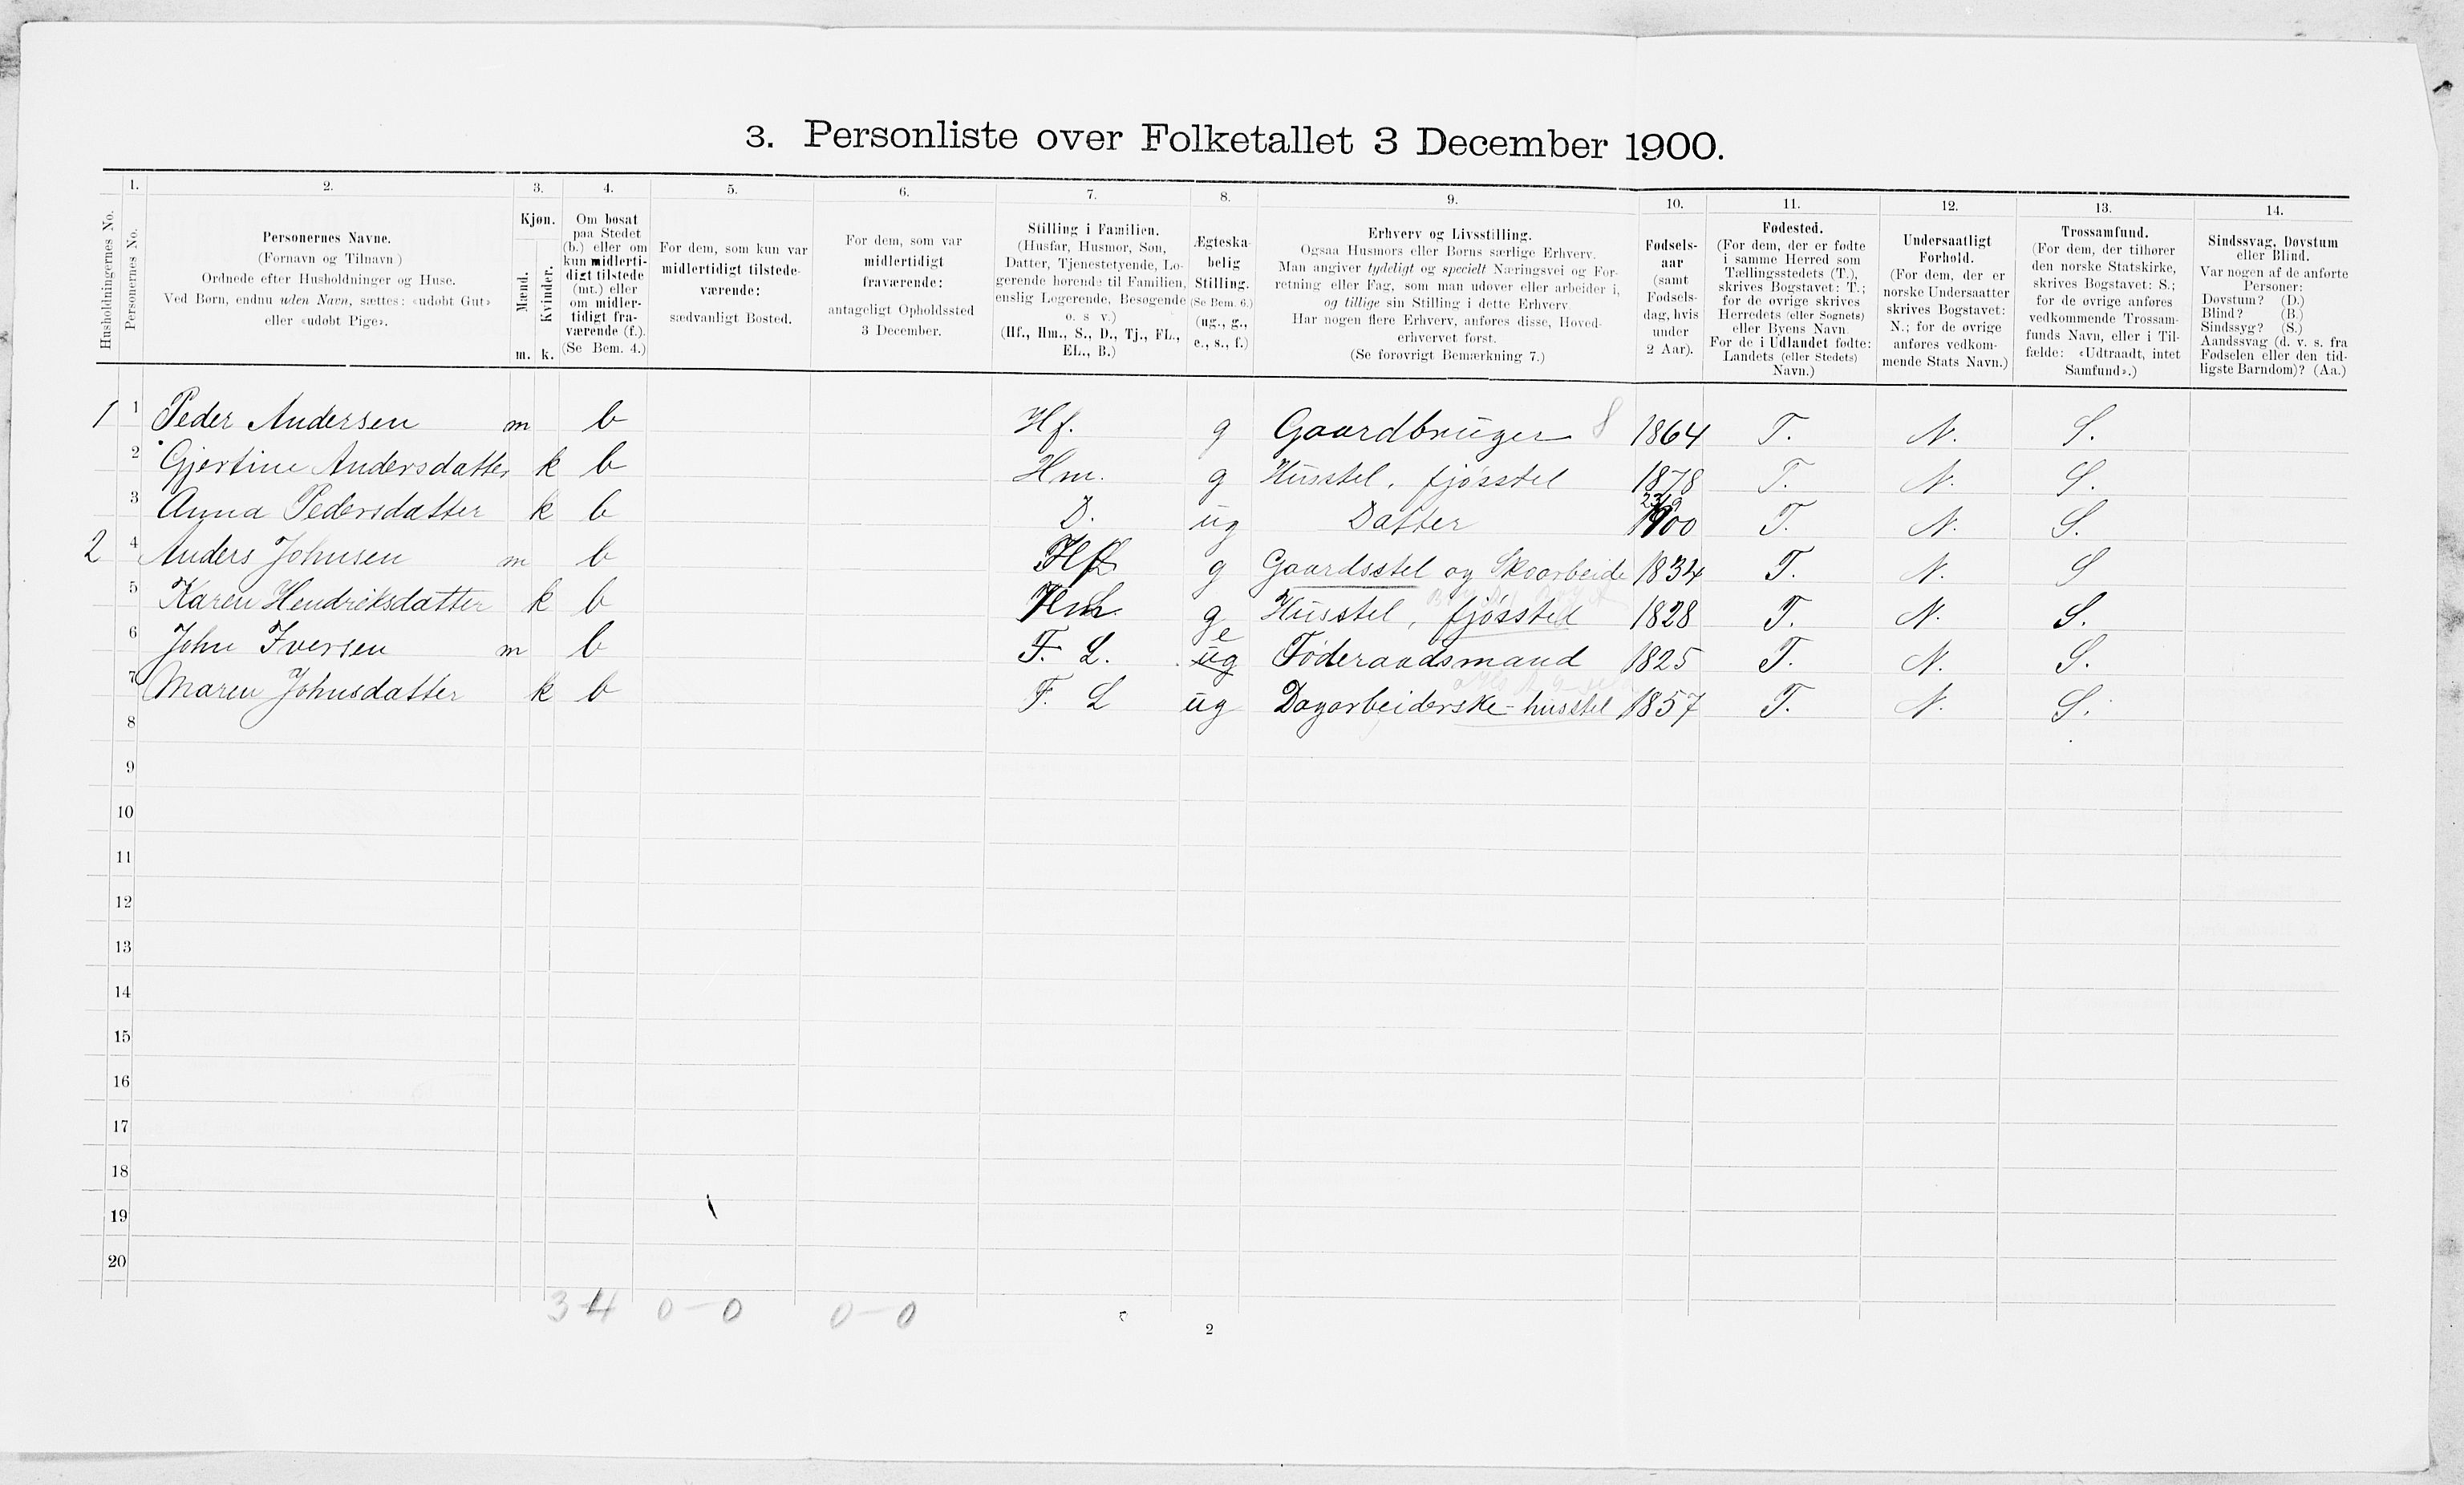 3. Personliste over Folketallet 3 December 1900.
1. 2. 3. 4. 5. 6. 7. 8. 9. 10. 11. 12. 13. 14.
Husholdningernes No.
Personernes No.
Personernes Navne.
(Fornavn og Tilnavn)
Ordnede efter Husholdninger og Huse.
Ved Børn, endnu uden Navn, sættes: «udøbt Gut»
eller «udøbt Pige».
Kjøn.
Mænd.
Kvinder.
m. k.
Om bosat
paa Stedet
(b.) eller om
kun midlerti-
digt tilstede
(mt.) eller
om midler-
tidigt fra-
værende (f.).
(Se Bem. 4.)
For dem, som kun var
midlertidigt tilstede-
værende:
sædvanligt Bosted.
For dem, som var
midlertidigt
fraværende:
antageligt Opholdssted
3 December.
Stilling i Familien.
(Husfar, Husmor, Søn,
Datter, Tjenestetyende, Lo-
gerende hørende til Familien,
enslig Logerende, Besøgende
o. s. v.)
(Hf., Hm., S., D., Tj., FL.,
EL., B.)
Ægteska-
belig
Stilling.
(Se Bem. 6.)
(ug., g.,
e., s., f.)
Erhverv og Livsstilling.
Ogsaa Husmors eller Børns særlige Erhverv.
Man angiver tydeligt og specielt Næringsvei og For-
retning eller Fag, som man udøver eller arbeider i,
og tillige sin Stilling i dette Erhverv.
Har nogen flere Erhverv, anføres disse, Hoved-
erhvervet først.
(Se forøvrigt Bemærkning 7.)
Fødsels-
aar
(samt
Fødsels-
dag, hvis
under
2 Aar).
Fødested.
(For dem, der er fødte
i samme Herred som
Tællingsstedets (T.),
skrives Bogstavet: T.;
for de øvrige skrives
Herredets (eller Sognets)
eller Byens Navn.
For de i Udlandet fødte:
Landets (eller Stedets)
Navn.)
Undersaatligt
Forhold.
(For dem, der er
norske Undersaatter
skrives Bogstavet:
N.; for de øvrige
anføres vedkom-
mende Stats Navn.)
Trossamfund.
(For dem, der tilhører
den norske Statskirke,
skrives Bogstavet: S.;
for de øvrige anføres
vedkommende Trossam-
funds Navn, eller i Til-
fælde: «Udtraadt, intet
Samfund».)
Sindssvag, Døvstum
eller Blind.
Var nogen af de anførte
Personer:
Døvstum? (D.)
Blind? (B.)
Sindssyg? (S.)
Aandssvag (d. v. s. fra
Fødselen eller den tid-
ligste Barndom)? (Aa.)
1 1 Peder Andersen m b Hf. g Gaardbruger 8 1864 T. N. S.
2 Gjertine Andersdatter k b Hm. g Husstel, fjósstel 1878 T. N. S.
3 Anna Pedersdatter k b D. ug Datter 1900 T. N. S.
2 4 Anders Johnsen m b g Gaardsstel og Skoarbeide 1834 T. N. S
5 Karen Hendriksdatter k b g Husstel, fjósstel 1828 T. N. S.
6 John Iversen m b F. L. ug e Föderaadsmand 1825 T. N. S.
7 Maren Johnsdatter k b F. L ug Dagarbeiderske - husstel 1857 T. N. S.
8
9
10
11
12
13
14
15
16
17
18
19
20
3-4 0-0 0-0
2